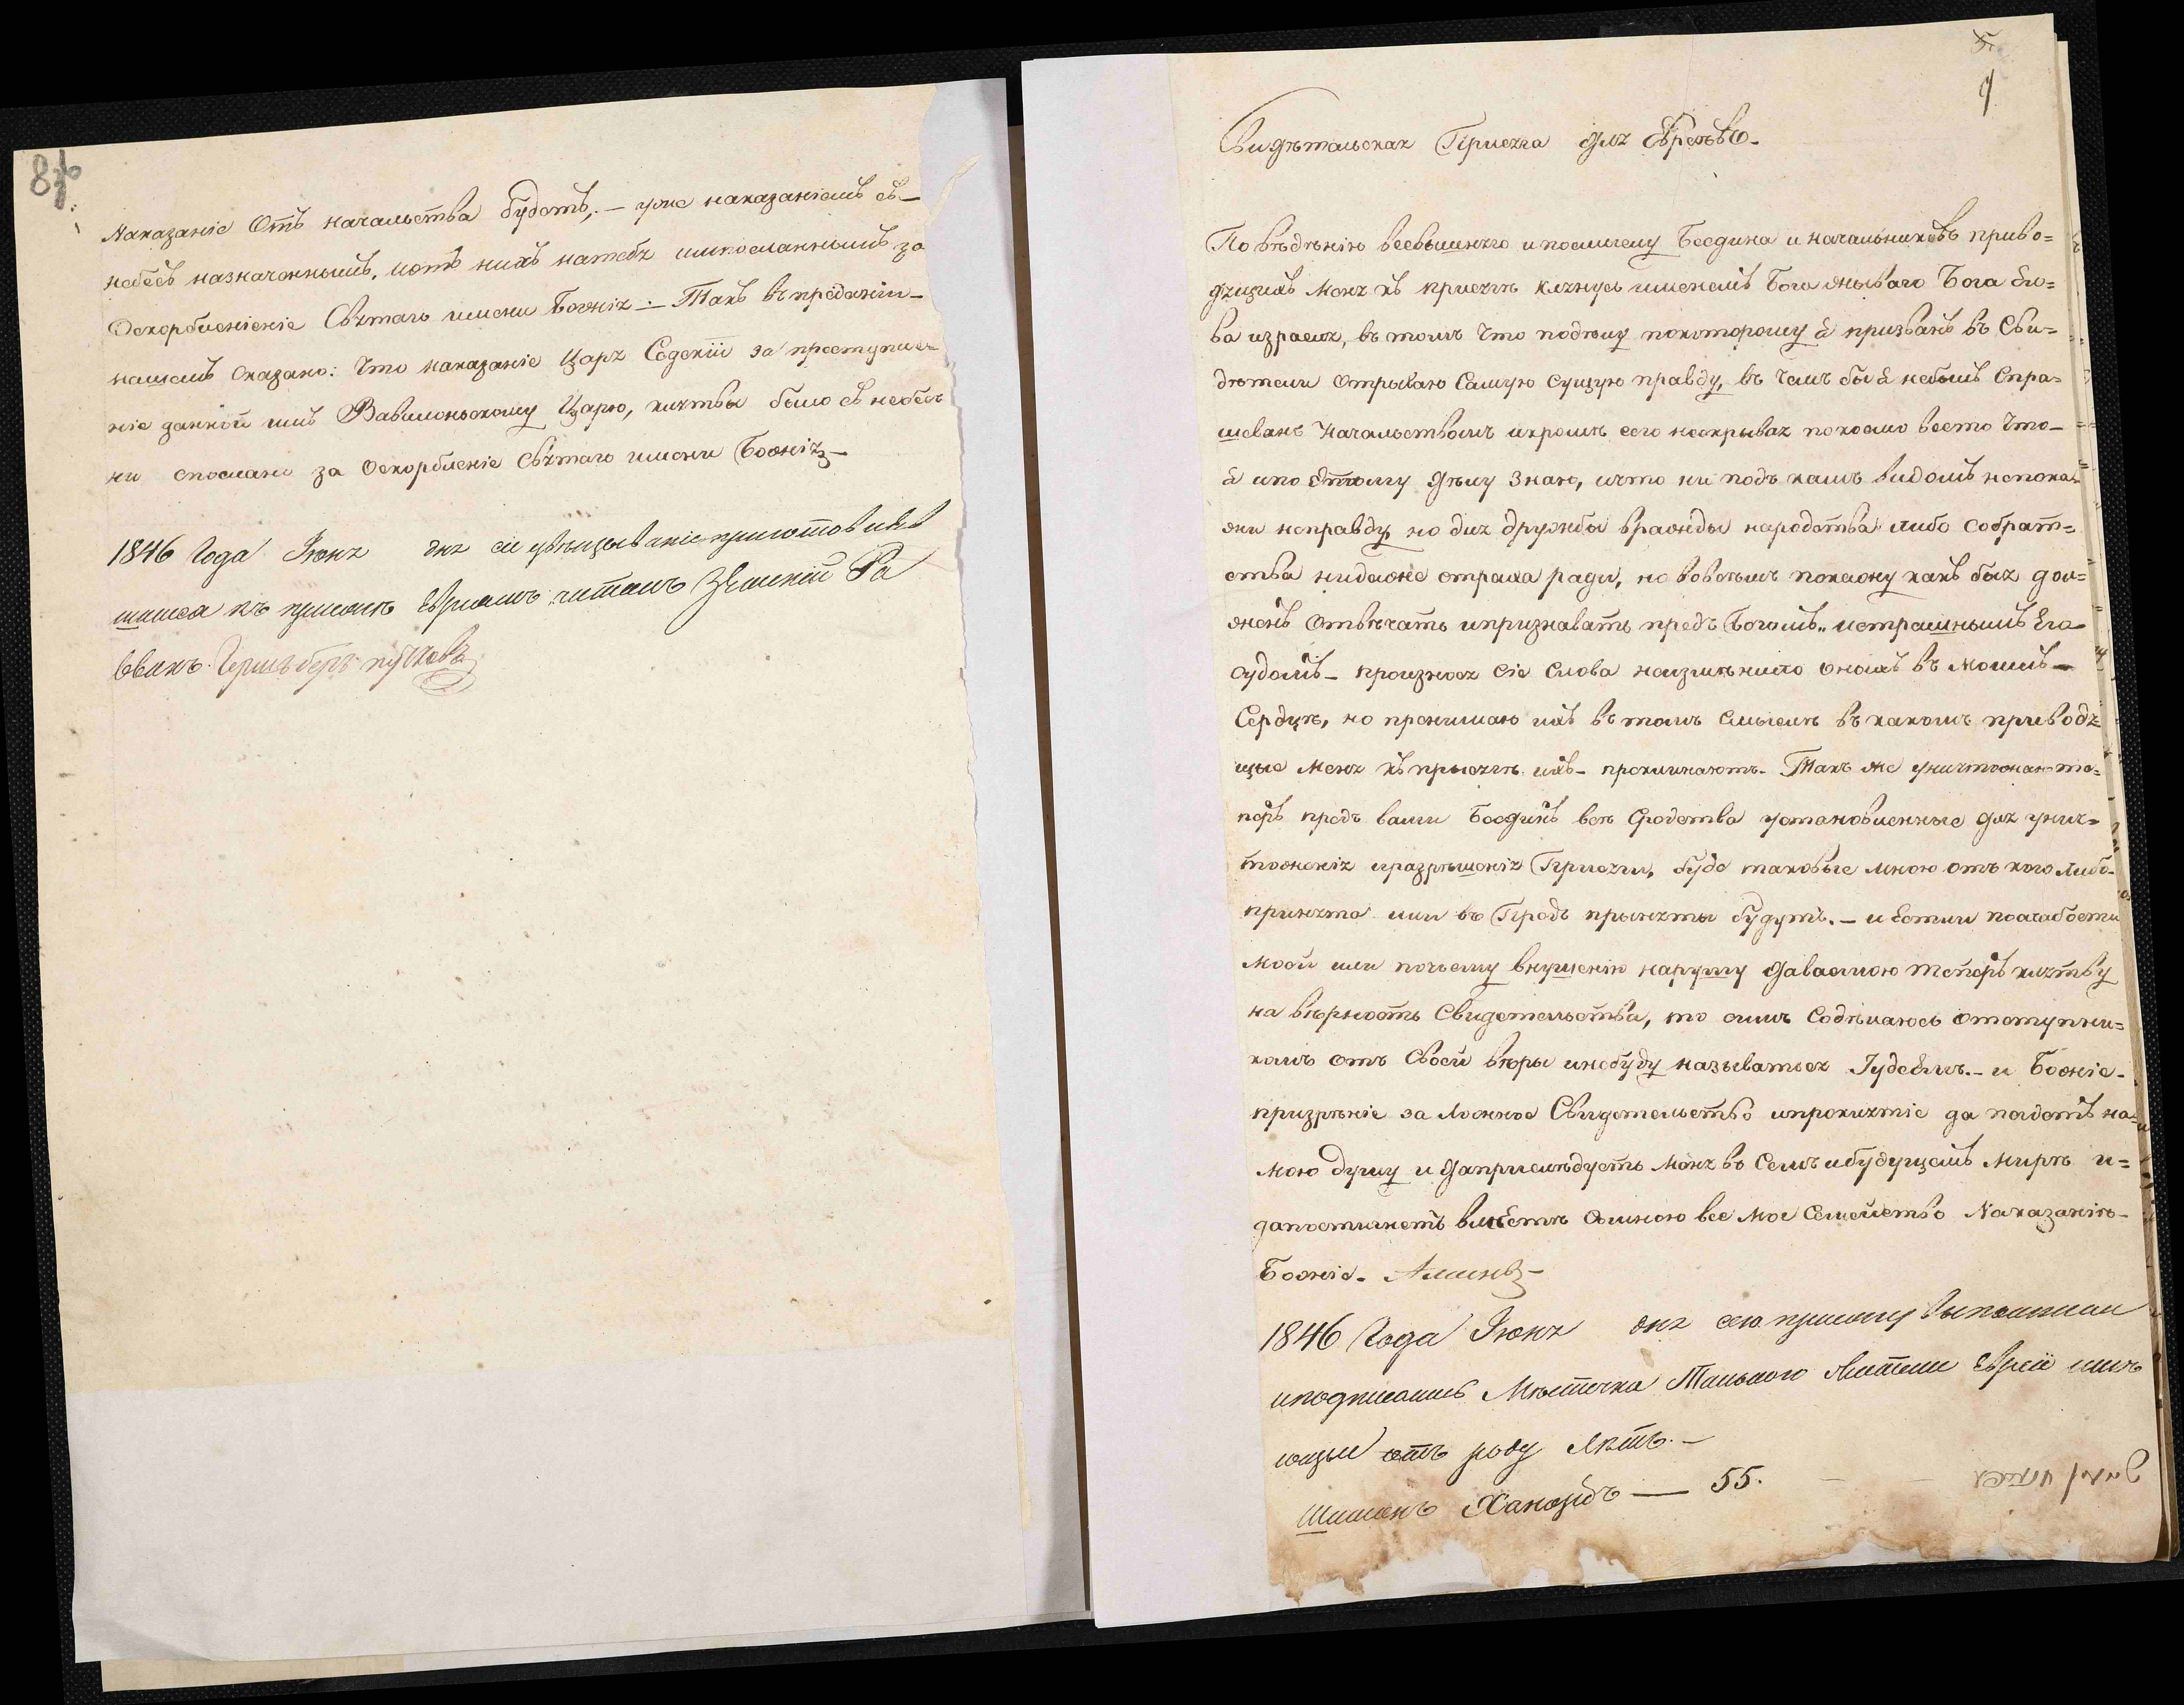 Наказаніе Отъ начальства будетъ, — уже наказаніемъ съ —
небесъ назначеннымъ, иотъ нихъ натебя ниспосланнымъ за
Оскорбленіеніе Святаго имени Божія — Такъ въ преданіи —
нашемъ сказано: Что наказаніе Царя Седекіи за преступле-
ніе данной имъ Вавилоньскому Царю, клятвы было съ небесъ
ни спослано за Оскорбленіе Святаго имени Божія —
1846 Года Іюня дня сіе увѣщываніе приготовляв
шимся къ присягѣ Евреямъ читалъ Земскій Ра
ввинъ Гершъ беръ
5.
9
Свидѣтельская Присяга для Евреѣвъ.
По вѣдѣнію всевышняго ипосилему Беседина и начальниковъ приво=
дящихъ меня къ присягѣ клянусь именемъ Бога живаго Бога Его=
ва израеля, въ томъ что подѣлу покоторому я призванъ въ Сви=
дѣтели открываю Самую сущую правду, въ чемъ бы я небылъ Спра=
шеванъ Начальствомъ икромѣ сего нескрывая покоемо всето что —
я ипо Этому дѣлу знаю, ичто ни подъ какимъ видомъ непока=
жи неправду, но для дружбы вражды народства либо Собрат=
ства нидаже страха ради, но вовсѣмъ покажу какъ бы я дол=
женъ Отвѣчать ипризнавать предъ Богомъ, истрашнымъ Его
судомъ — произнося сіе Слова неизмѣняю онихъ въ моемъ —
Сердцѣ, но пренимаю ихъ въ томъ смыслѣ въ какомъ приводя=
щые меня къ прысягѣ ихъ — пренимаютъ. Такъ же уничтожаю те=
перъ предъ вами Беединъ всѣ Средства установленные для унич=
тоженія иразрѣшенія Присяги, буде таковые мною отъ кого либо —
принята или въ Предъ приняты будутъ. — и Естли послабости
моей или почьему внушенію нарушу даваемою теперъ клятву
на вѣрность Свидетельства, то симъ Содѣлаюсь отступни=
комъ отъ Своей вѣры инебуду называться Іудеемъ. — и Божіе —
призрѣніе за ложное Свидетельство ипроклятіе да падетъ на —
мою душу и Даприслѣдуетъ меня въ Семъ ибудущемъ мирѣ и =
дапостигнетъ вмѣстѣ Сомною все мое Семейство Наказаніе —
Божіе. Аминь —
1846 Года Іюня дня сею присягу выполнили
иподписались Мѣстечка Тального жители Евреи имѣ
ющые отъ роду лѣтъ. —
Шимонъ — 55.